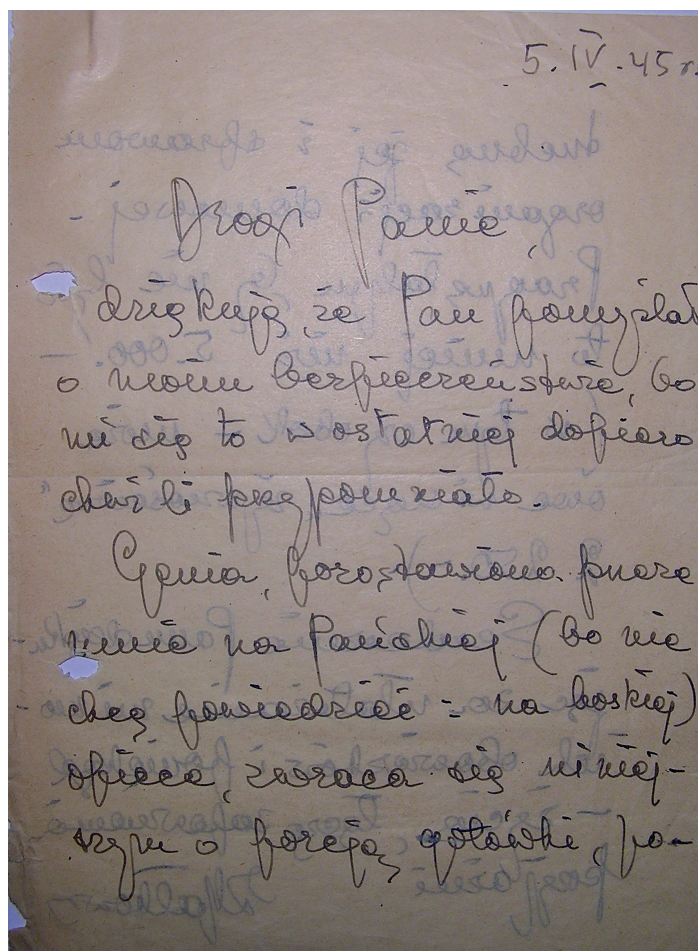 5. IV. 45 r.
Drogi Panie,
dziękuję, że Pan pomyślał
o moim bezpieczeństwie, bo
mi się to w ostatniej dopiero
chwili przypomniało.
Genia, pozostawiona przeze
mnie na Pańskiej (bo nie
chcę powiedzieć - na boskiej)
opiece, zwraca się niniej-
szym o porcję gotówki, po-